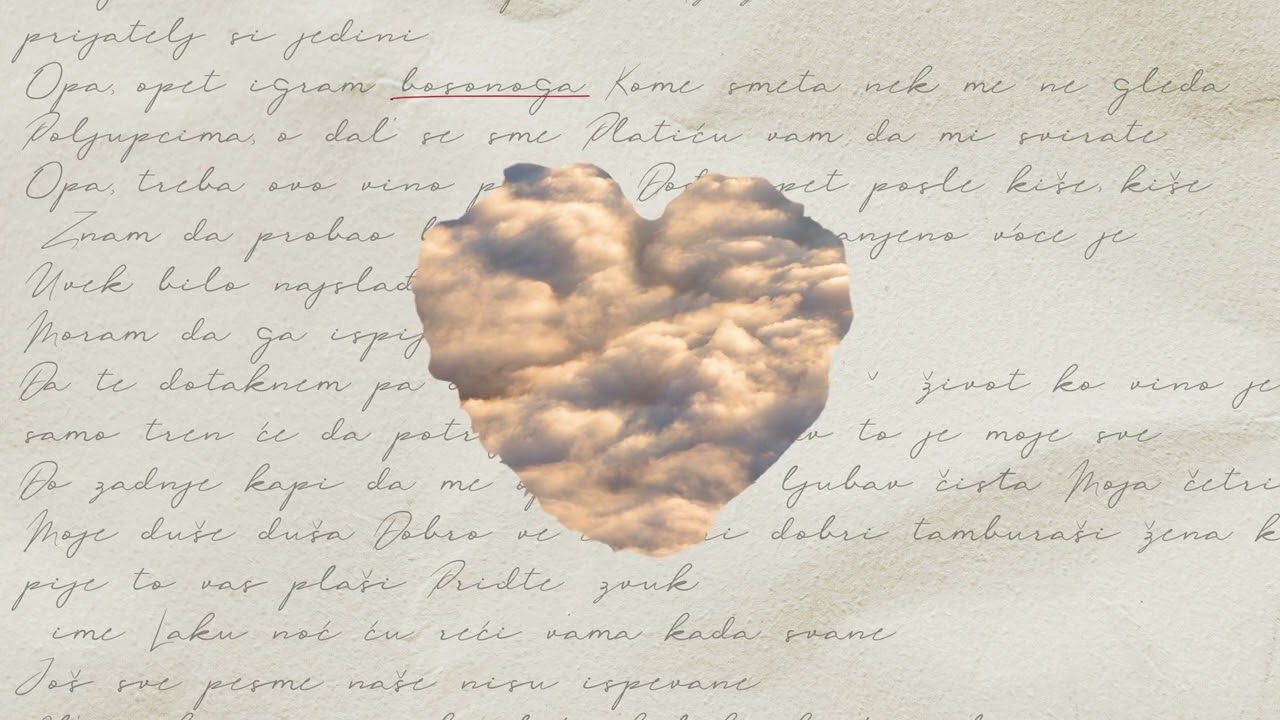 prijatelj si jedini
Opa, opet igram bosonoga Kome smeta nek me ne gleda
Poljupcima, o dal' se sme Platiću vam da mi svirate
Opa, treba ovo vino opet posle kiše, kiše
Znam da probao voće je
Uvek bilo
Moram da ga
Da te dotaknem pa život ko vino je
samo tren će da to je moje sve
Do zadnje kapi da me ljubav čista Moja
Moje duše duša Dobro dobri tamburaši žena
pije to vas plaši Pridte zvuk
ime Laku noć ću reći vama kada svane
Još sve pesme naše nisu ispevane